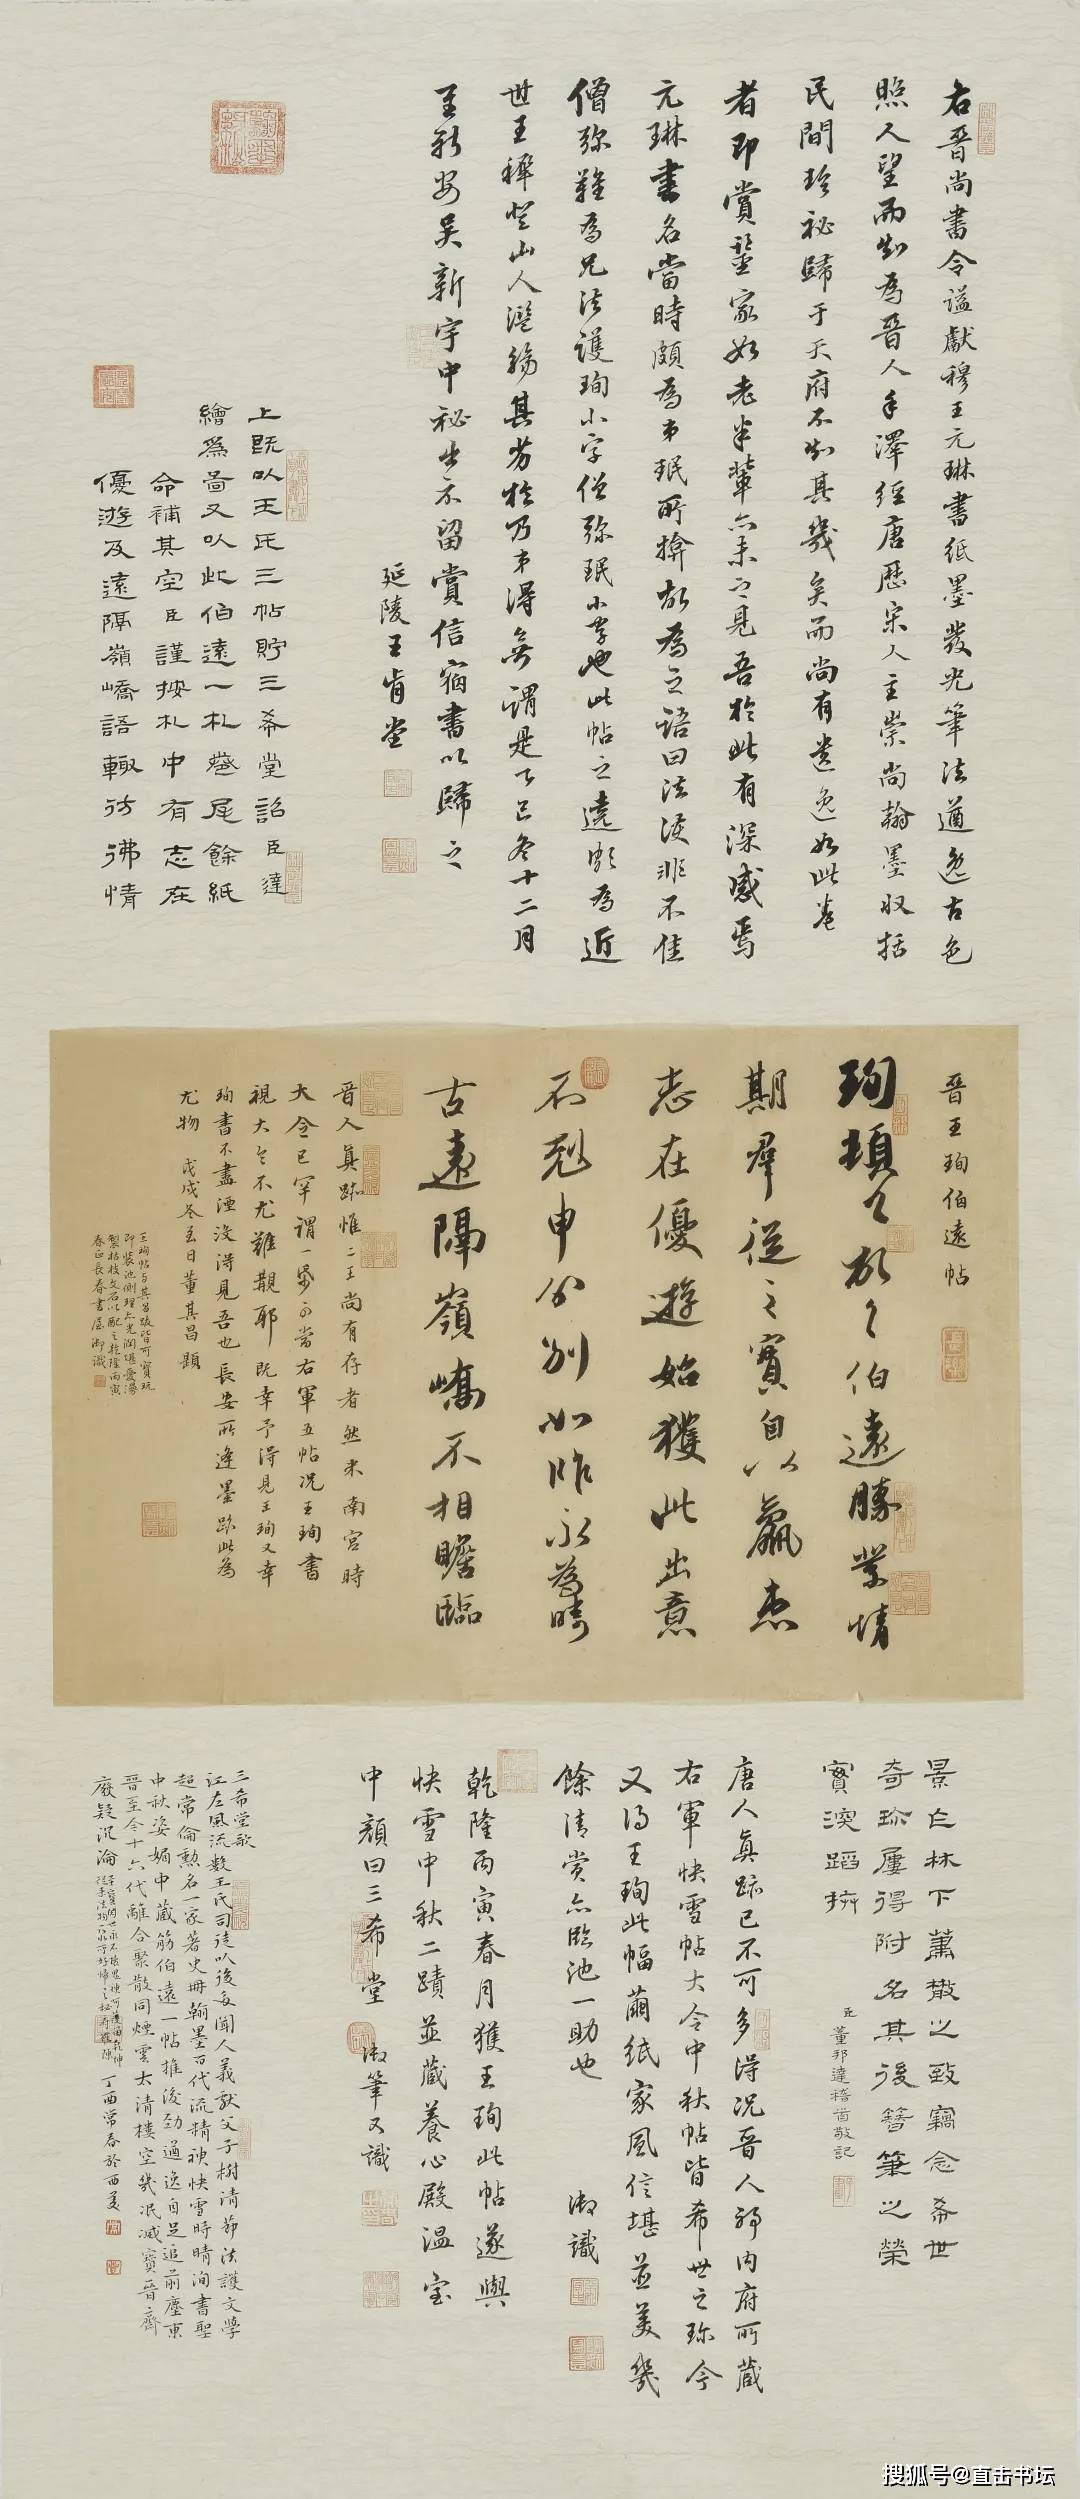 右晉尚書令謚獻穆王元琳書紙墨發光筆法遒逸古色
照人望而知為晉人手澤經唐歷宋人主崇尚翰墨收括
民間珍祕歸于天府不知其幾矣而尚有遺逸如此卷
者即賞鑒家如老米輩亦未之見吾於此有深感焉
元琳書名當時頗為弟珉所揜故為之語曰法護非不佳
僧彌難為兄法護珣小字僧彌珉小字也此帖之遶媚為近
世王穉登山人濫觴其芬於乃弟得無謂是
己冬十二月
至新安吳新宇中秘出示留賞信宿書以歸之
延陵王肯堂
上既以王氏三帖貯三希堂詔臣達
繪為圖又以此伯遠一札卷尾餘紙
命補其空臣謹按札中有志在
優遊及遠隔嶺嶠語輒彷彿情
晉王珣伯遠帖
珣頓々頓々伯遠勝業情
期群從之寶自以羸患
志在優遊始獲此出意
不剋申分別如昨永為疇
古遠隔嶺嶠不相瞻臨
晉人真跡惟二王尚有存者然米南宮時
大令已罕謂一紙可當右軍五帖況王珣書
視大令不尤難覯耶既幸予得見王珣又幸
珣書不盡湮沒得見吾也長安所逢墨跡此為
尤物 戊戌冬至日董其昌題
王珣帖與其昌跋皆可寶玩
即裝池側理亦光潤堪愛漫
製枯枝文石以配之乾隆丙寅
春正長春書屋御識
景亡林下蕭散之致竊念希世
奇珍屢得附名其後簪筆之榮
實深蹈抃
臣董邦達稽首敬記
唐人真跡已不可多得況晉人耶內府所藏
右軍快雪帖大令中秋帖皆希世之珎今
又得王珣此幅繭紙家風信堪並美幾
餘清賞亦臨池一助也 御識
乾隆丙寅春月獲王珣此帖遂與
快雪中秋二蹟並藏養心殿溫室
中顏曰三希堂 御筆又識
三希堂歌
江左風流數王氏司徒以後多聞人羲獻父子樹清節法護文學
超常倫勳名一家著史冊翰墨百代流精神快雪時晴洵書聖
中秋姿媚中藏筋伯遠一帖推後勁遒逸自足追前塵東
晉至今十六代離合聚散同煙雲太清樓空幾泯滅寶晉齋
廢疑沉淪
丁酉常春於西美
搜狐号@直击书坛